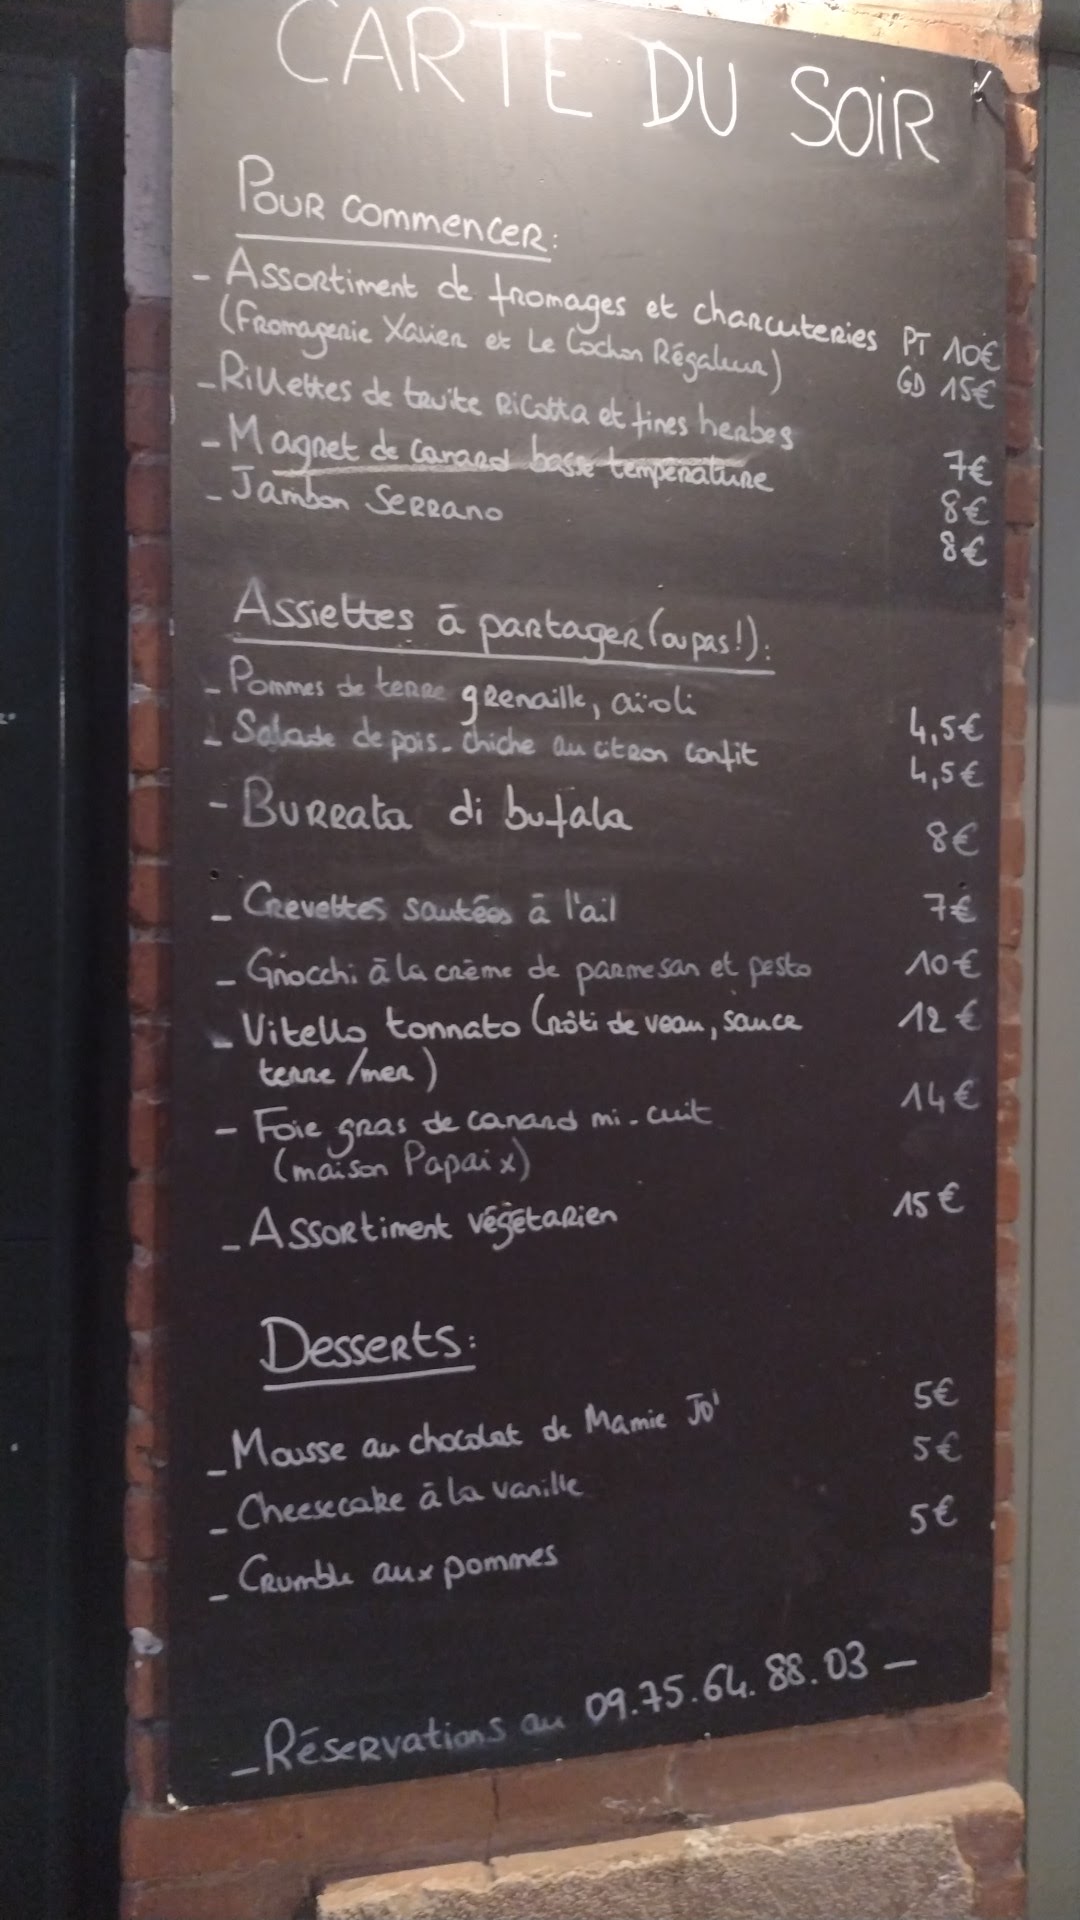 CARTE DU SOIR
Pour commencer:
- Assortiment de fromages et charcuteries PT 10€
(Fromagerie Xavier et Le Cochon Régaleur) GD 15€
- Rillettes de truite Ricotta et fines herbes 7€
- Magret de canard basse température 8€
- Jambon Serrano 8€
Assiettes à partager (ou pas!):
- Pommes de terre grenaille, aïoli 4,5€
- Salade de pois-chiche au citron confit 4,5€
- Burrata di bufala 8€
- Crevettes sautées à l'ail 7€
- Gnocchi à la crème de parmesan et pesto 10€
- Vitello tonnato (rôti de veau, sauce 12€
terre/mer)
- Foie gras de canard mi-cuit 14€
(maison Papaix)
- Assortiment végétarien 15€
Desserts:
- Mousse au chocolat de Mamie Jo' 5€
- Cheesecake à la vanille 5€
- Crumble aux pommes 5€
- Réservations au 09.75.64.88.03 -